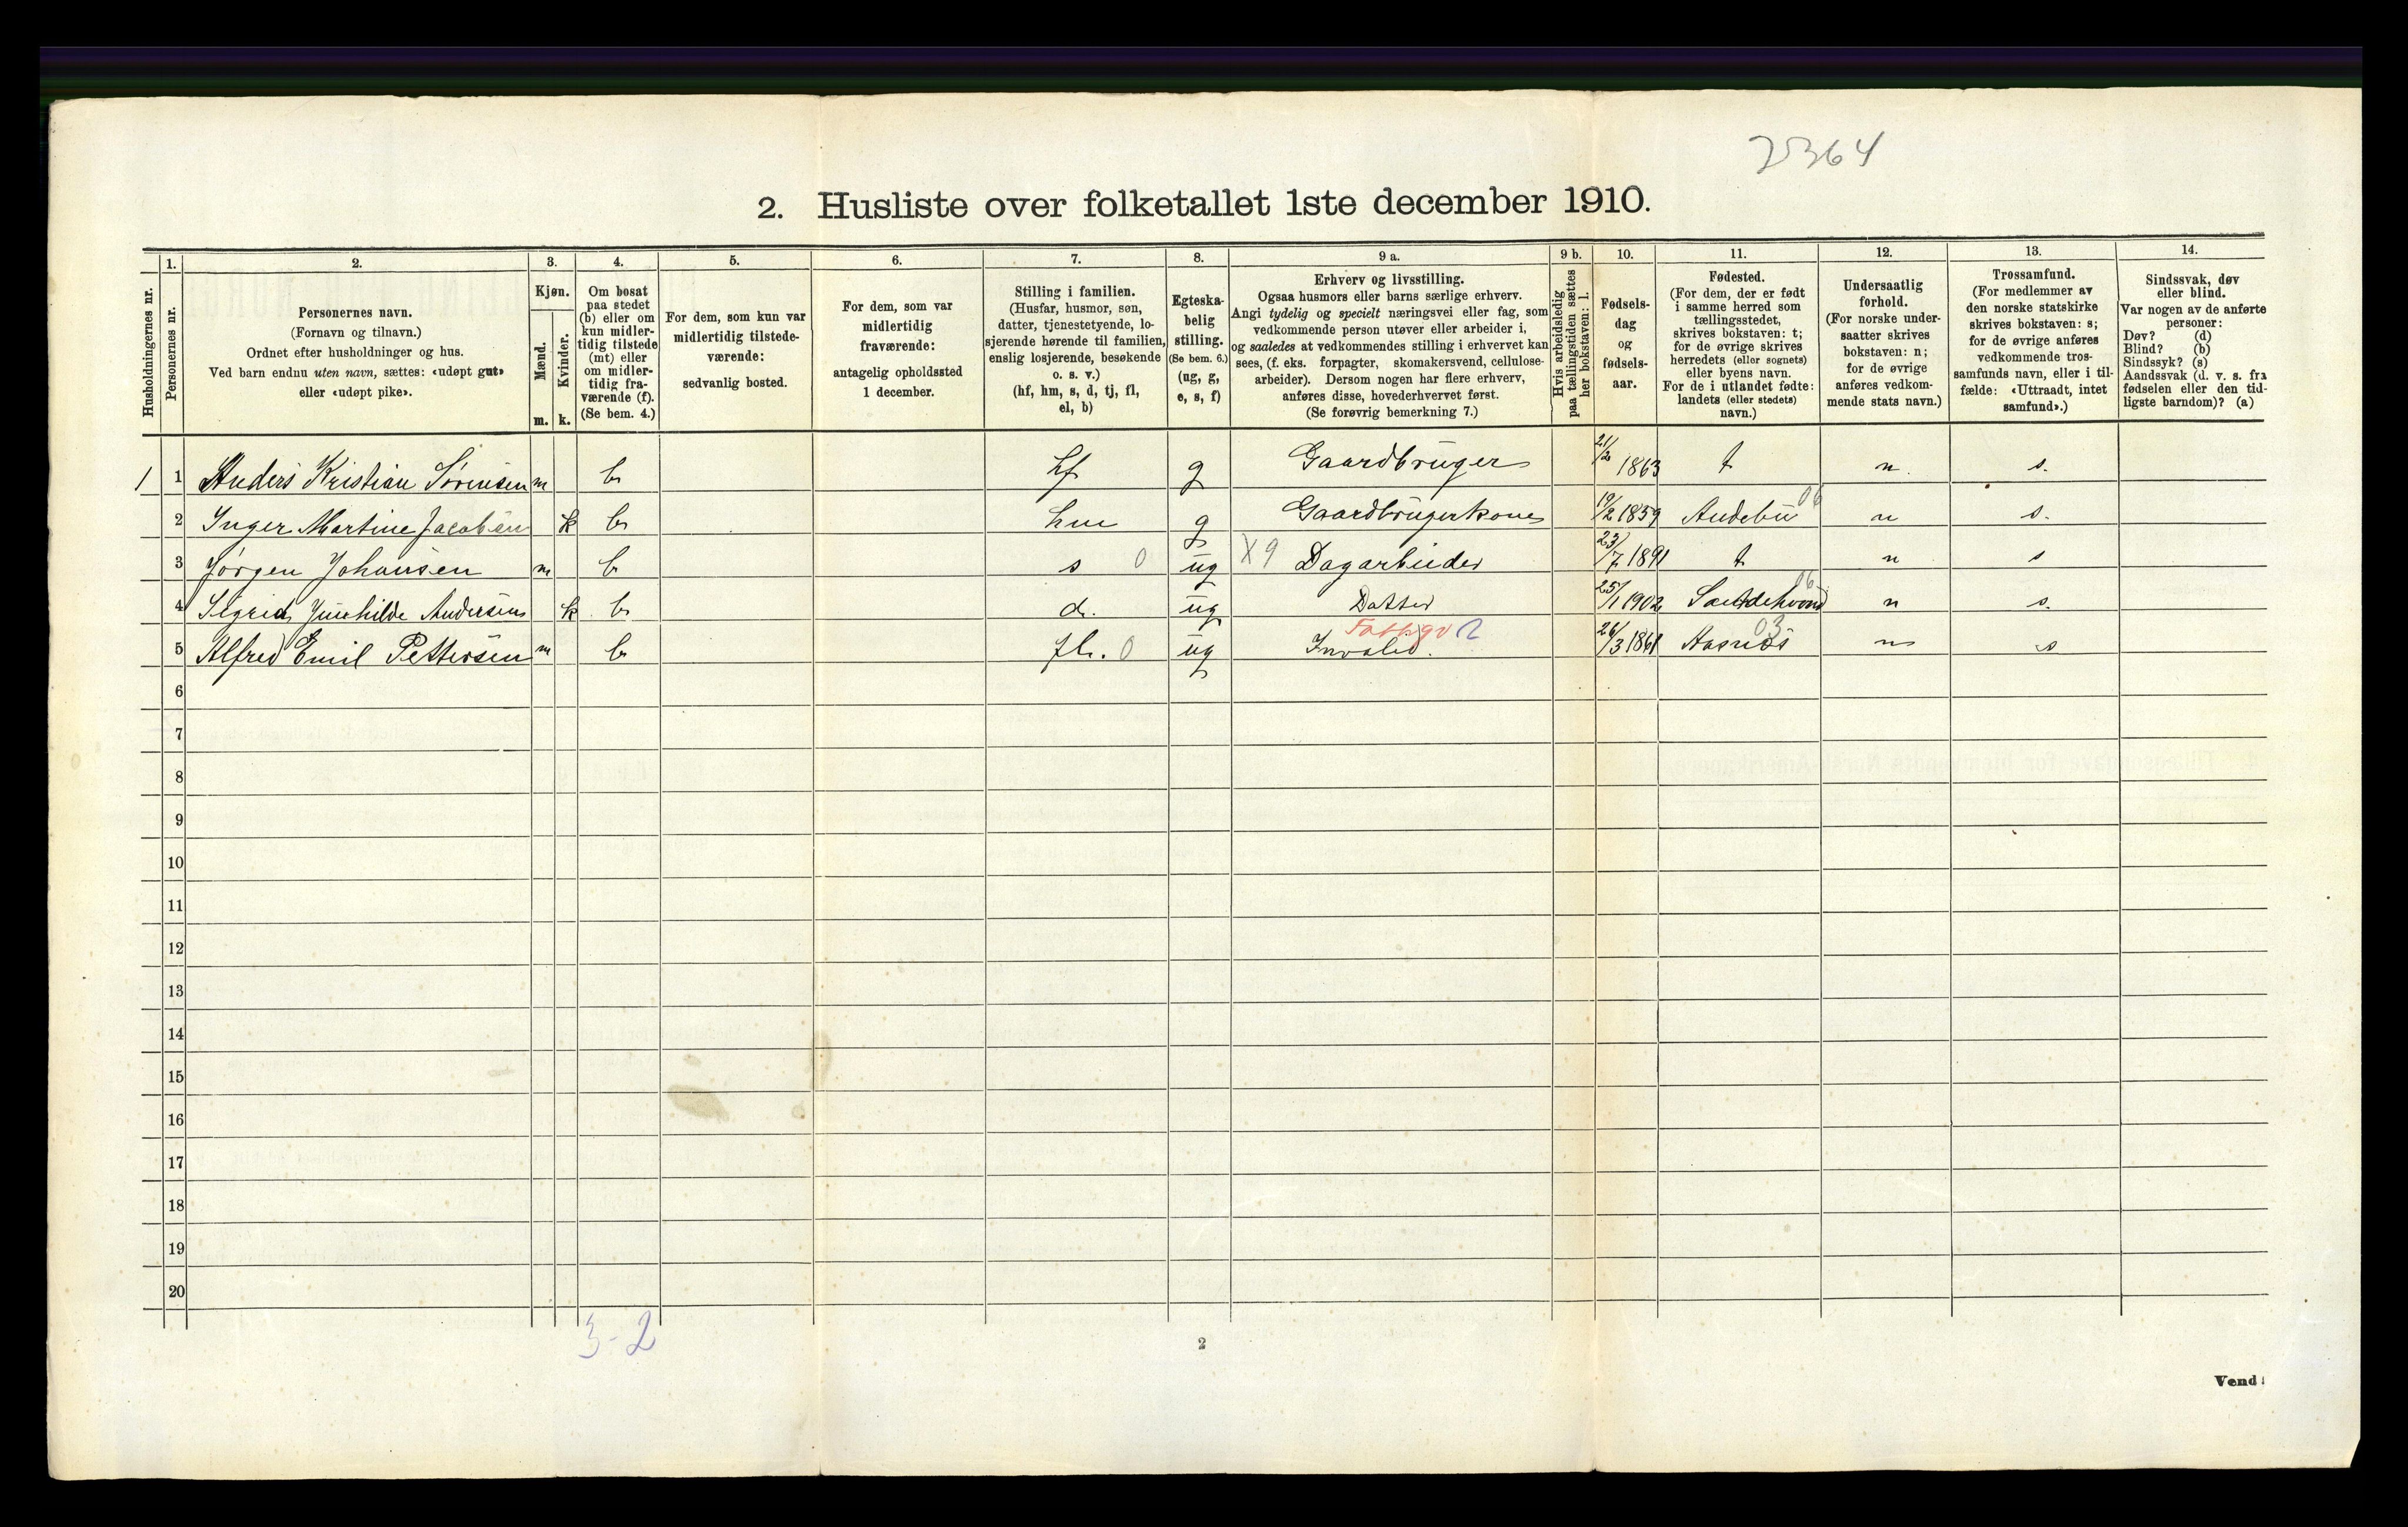 2364
2. Husliste over folketallet 1ste december 1910.
Husholdningernes nr.
1.
Personernes nr.
2.
Personernes navn.
(Fornavn og tilnavn.)
Ordnet efter husholdninger og hus.
Ved barn endnu uten navn, sættes: «udøpt gut»
eller «udøpt pike».
3.
Kjøn.
Mænd.
Kvinder.
m. k.
4.
Om bosat
paa stedet
(b) eller om
kun midler-
tidig tilstede
(mt) eller
om midler-
tidig fra-
værende (f).
(Se bem. 4.)
5.
For dem, som kun var
midlertidig tilstede-
værende:
sedvanlig bosted.
6.
For dem, som var
midlertidig
fraværende:
antagelig opholdssted
1 december.
7.
Stilling i familien.
(Husfar, husmor, søn,
datter, tjenestetyende, lo-
sjerende hørende til familien,
enslig losjerende, besøkende
o. s. v.)
(hf, hm, s, d, tj, fl,
el, b)
8.
Egteska-
belig
stilling.
(Se bem. 6.)
(ug, g,
e, s, f)
9 a.
Erhverv og livsstilling.
Ogsaa husmors eller barns særlige erhverv.
Angi tydelig og specielt næringsvei eller fag, som
vedkommende person utøver eller arbeider i,
og saaledes at vedkommendes stilling i erhvervet kan
sees, (f. eks. forpagter, skomakersvend, cellulose-
arbeider). Dersom nogen har flere erhverv,
anføres disse, hovederhvervet først.
(Se forøvrig bemerkning 7.)
9 b.
Hvis arbeidsledig
paa tællingstiden sættes
her bokstaven: l.
10.
Fødsels-
dag
og
fødsels-
aar.
11.
Fødested.
(For dem, der er født
i samme herred som
tællingsstedet,
skrives bokstaven: t;
for de øvrige skrives
herredets (eller sognets)
eller byens navn.
For de i utlandet fødte:
landets (eller stedets)
navn.)
12.
Undersaatlig
forhold.
(For norske under-
saatter skrives
bokstaven: n;
for de øvrige
anføres vedkom-
mende stats navn.)
13.
Trossamfund.
(For medlemmer av
den norske statskirke
skrives bokstaven: s;
for de øvrige anføres
vedkommende tros-
samfunds navn, eller i til-
fælde: «Uttraadt, intet
samfund».)
14.
Sindssvak, døv
eller blind.
Var nogen av de anførte
personer:
Døv? (d)
Blind? (b)
Sindssyk? (s)
Aandssvak (d. v. s. fra
fødselen eller den tid-
ligste barndom)? (a)
1 1 Anders Kristian Sørensen m b hf g Gaardbruger 21/2 1863 t n. s.
2 Inger Martine Jacobsen k b hm g Gaardbrugerkone 19/2 1859 Andebu 06 n s.
3 Jørgen Johansen m b s 0 ug X9 Dagarbeider 23/7 1891 t n s
4 Sigrid Junhilde Andersen k b d. ug Datter 25/1 1902 06 n s.
5 Alfred Emil Pettersen m b fl. 0 ug Invalid. Fattigv 2 26/3 1861 03 n s
6
7
8
9
10
11
12
13
14
15
16
17
18
19
20
3-2
2
Vend!